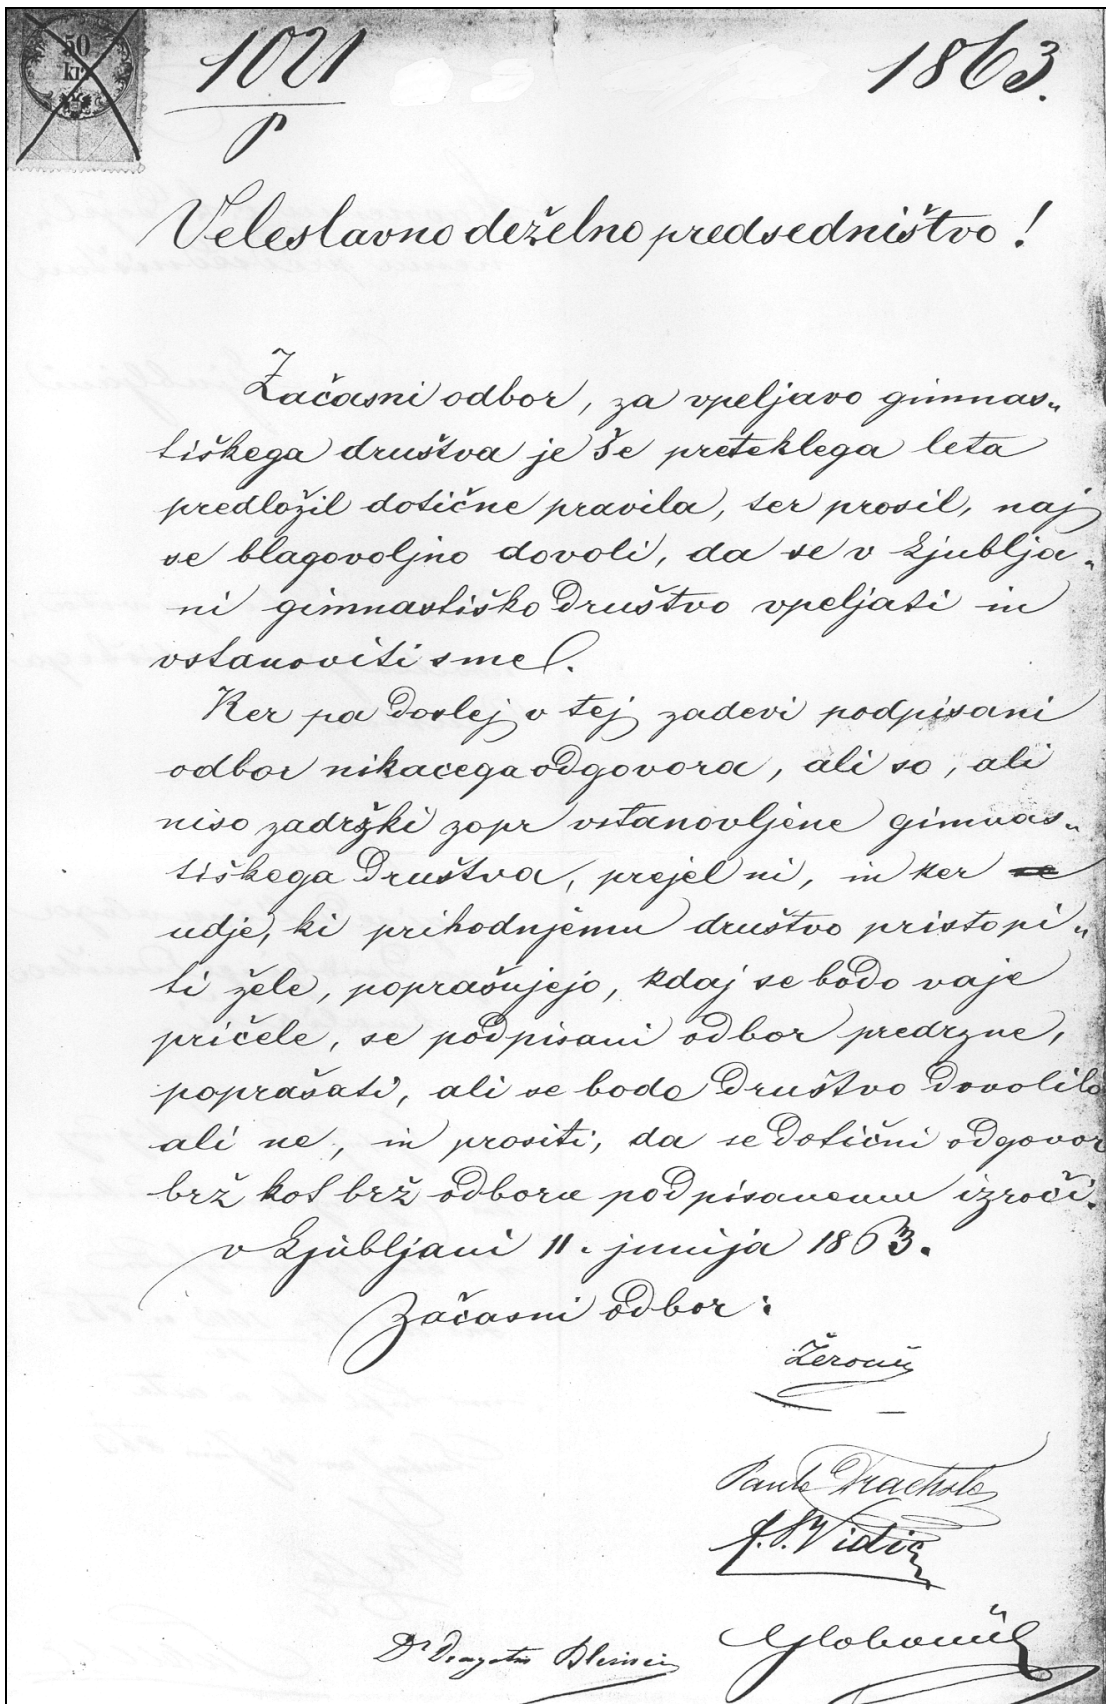 50
kr
1021
P
1863.
Veleslavno deželno predsedništvo!
Začasni odbor, za vpeljavo gimnas„
tiškega društva je še preteklega leta
predložil dotične pravila, ter prosil, naj
se blagovoljno dovoli, da se v Ljublja„
ni gimnastiško društvo vpeljati in
vstanoviti sme.
Ker pa doslej v tej zadevi podpisani
odbor nikacega odgovora, ali so, ali
niso zadržki zopr vstanovljene gimnas„
tiškega društva, prejel ni, in ker se
udje, ki prihodnjemu društvo pristopi„
ti žele, poprašujejo, kdaj se bodo vaje
pričele, se podpisani odbor predrzne,
poprašati, ali se bode društvo dovolilo
ali ne, in prositi, da se dotični odgovor
brž kot brž odboru podpisanemu izroči.
v Ljubljani 11. junija 1863.
Začasni odbor:
Vidic
Dr